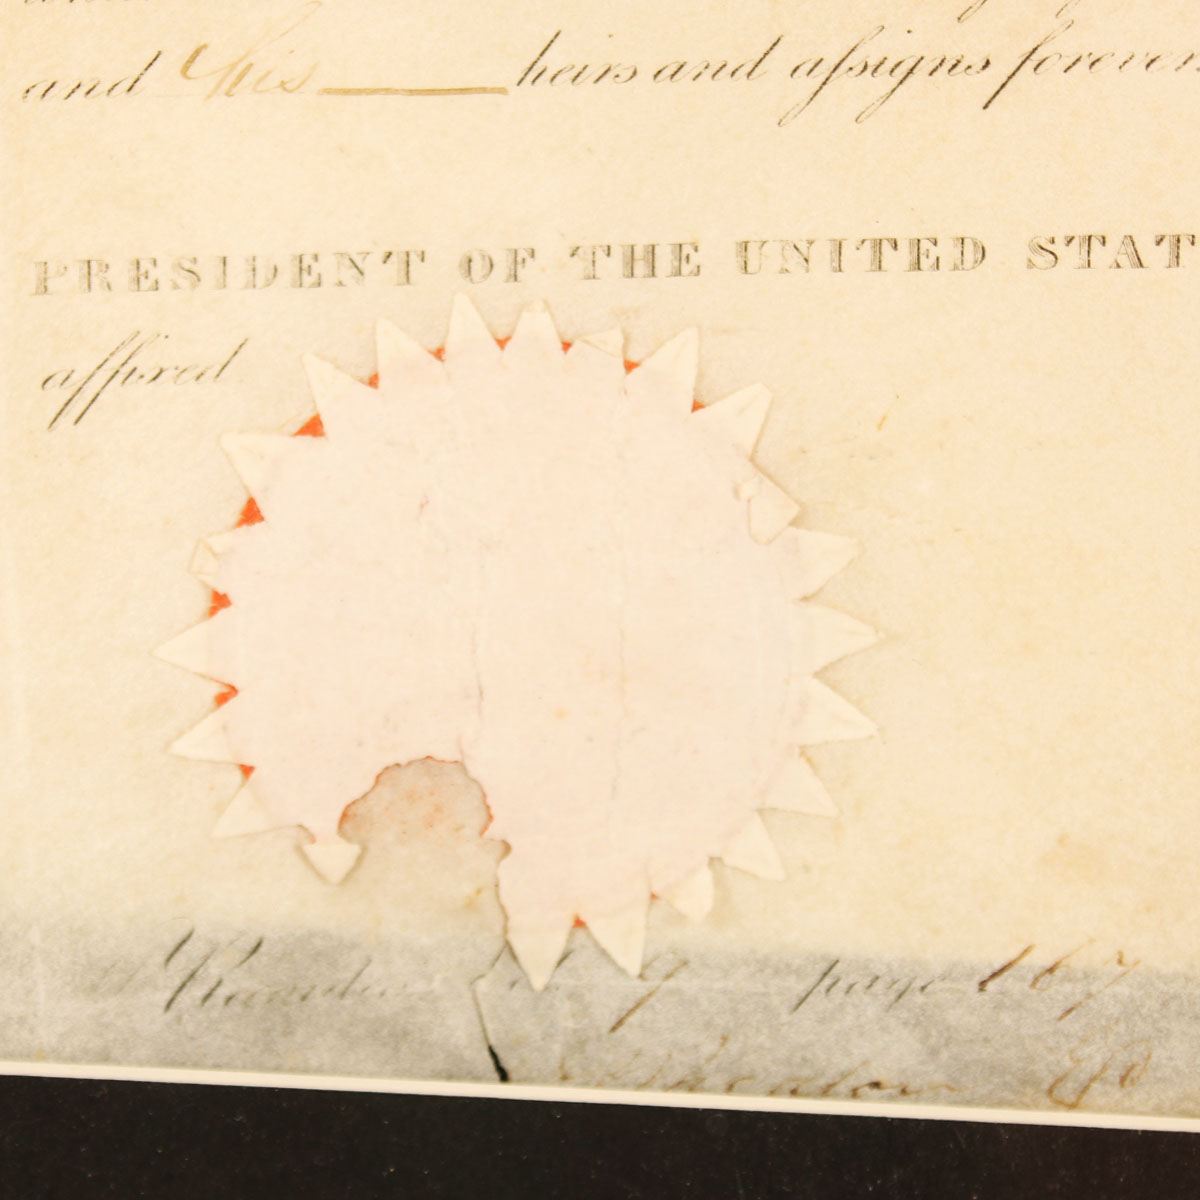 and his heirs and assigns forever
PRESIDENT OF THE UNITED STAT
affixed
Recorded Vol 9 page 167